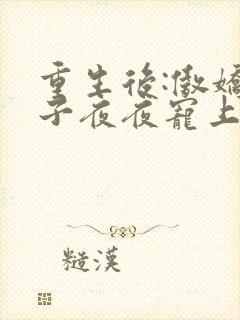 重生後:傲嬌
子夜夜寵上
糙漢